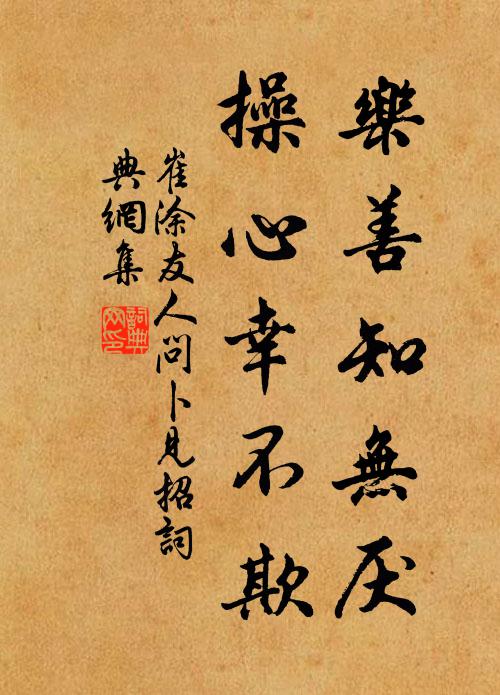 樂善知無厌
操心幸不欺
崔涂友人問卜見招詞
典網集
詞典
网印